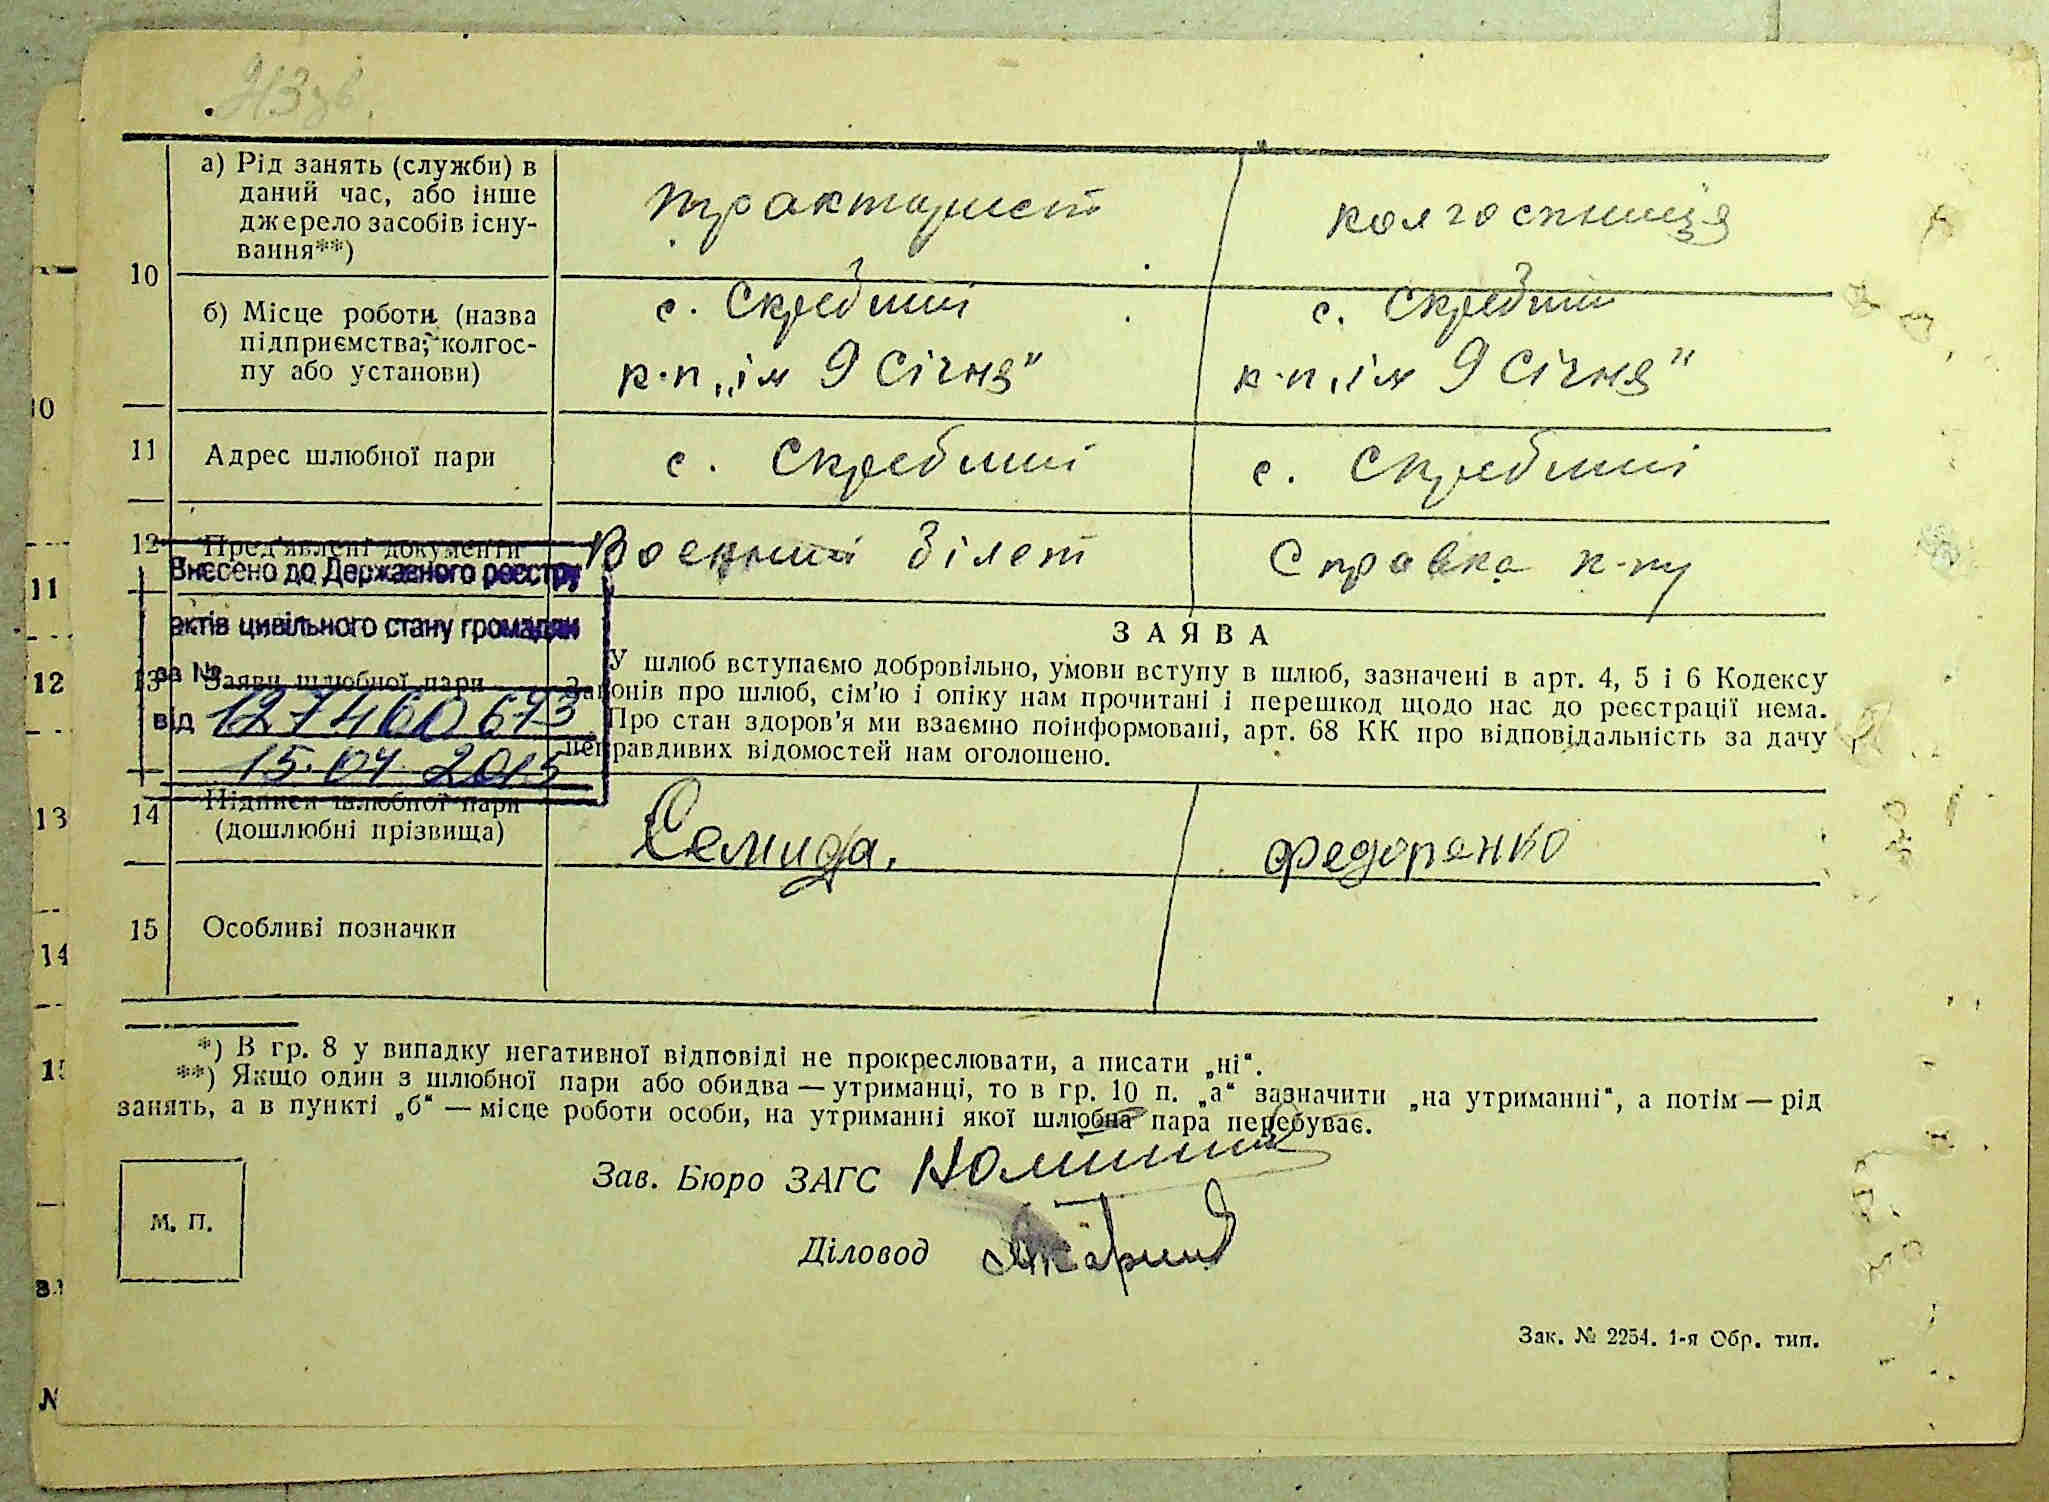 а) Рід занять (служби) в
даний час, або інше
джерело засобів існу-
вання**)
тракторист
колгоспниця
10
б) Місце роботи (назва
підприємства, колгос-
пу або установи)
с. Скребиші
к-п „ім 9 Січня"
с. Скребиші
к-п „ім 9 Січня"
11
Адрес шлюбної пари
с. Скребиші
с. Скребиші
12
Пред'явлені документи
Воєнний білет
Справка к-пу
Внесено до Державного реєстру
актів цивільного стану громадян
за №
від 127460673
15.04.2015
13
Заяви шлюбної пари
ЗАЯВА
У шлюб вступаємо добровільно, умови вступу в шлюб, зазначені в арт. 4, 5 і 6 Кодексу
Законів про шлюб, сім'ю і опіку нам прочитані і перешкод щодо нас до реєстрації нема.
Про стан здоров'я ми взаємно поінформовані, арт. 68 КК про відповідальність за дачу
неправдивих відомостей нам оголошено.
14
Підписи шлюбної пари
(дошлюбні прізвища)
Семида.
Федоренко
15
Особливі позначки
*) В гр. 8 у випадку негативної відповіді не прокреслювати, а писати „ні“.
**) Якщо один з шлюбної пари або обидва — утриманці, то в гр. 10 п. „а“ зазначити „на утриманні“, а потім — рід
занять, а в пункті „б“ — місце роботи особи, на утриманні якої шлюбна пара перебуває.
Зав. Бюро ЗАГС
М. П.
Діловод
Зак. № 2254. 1-я Обр. тип.
10
11
12
13
14